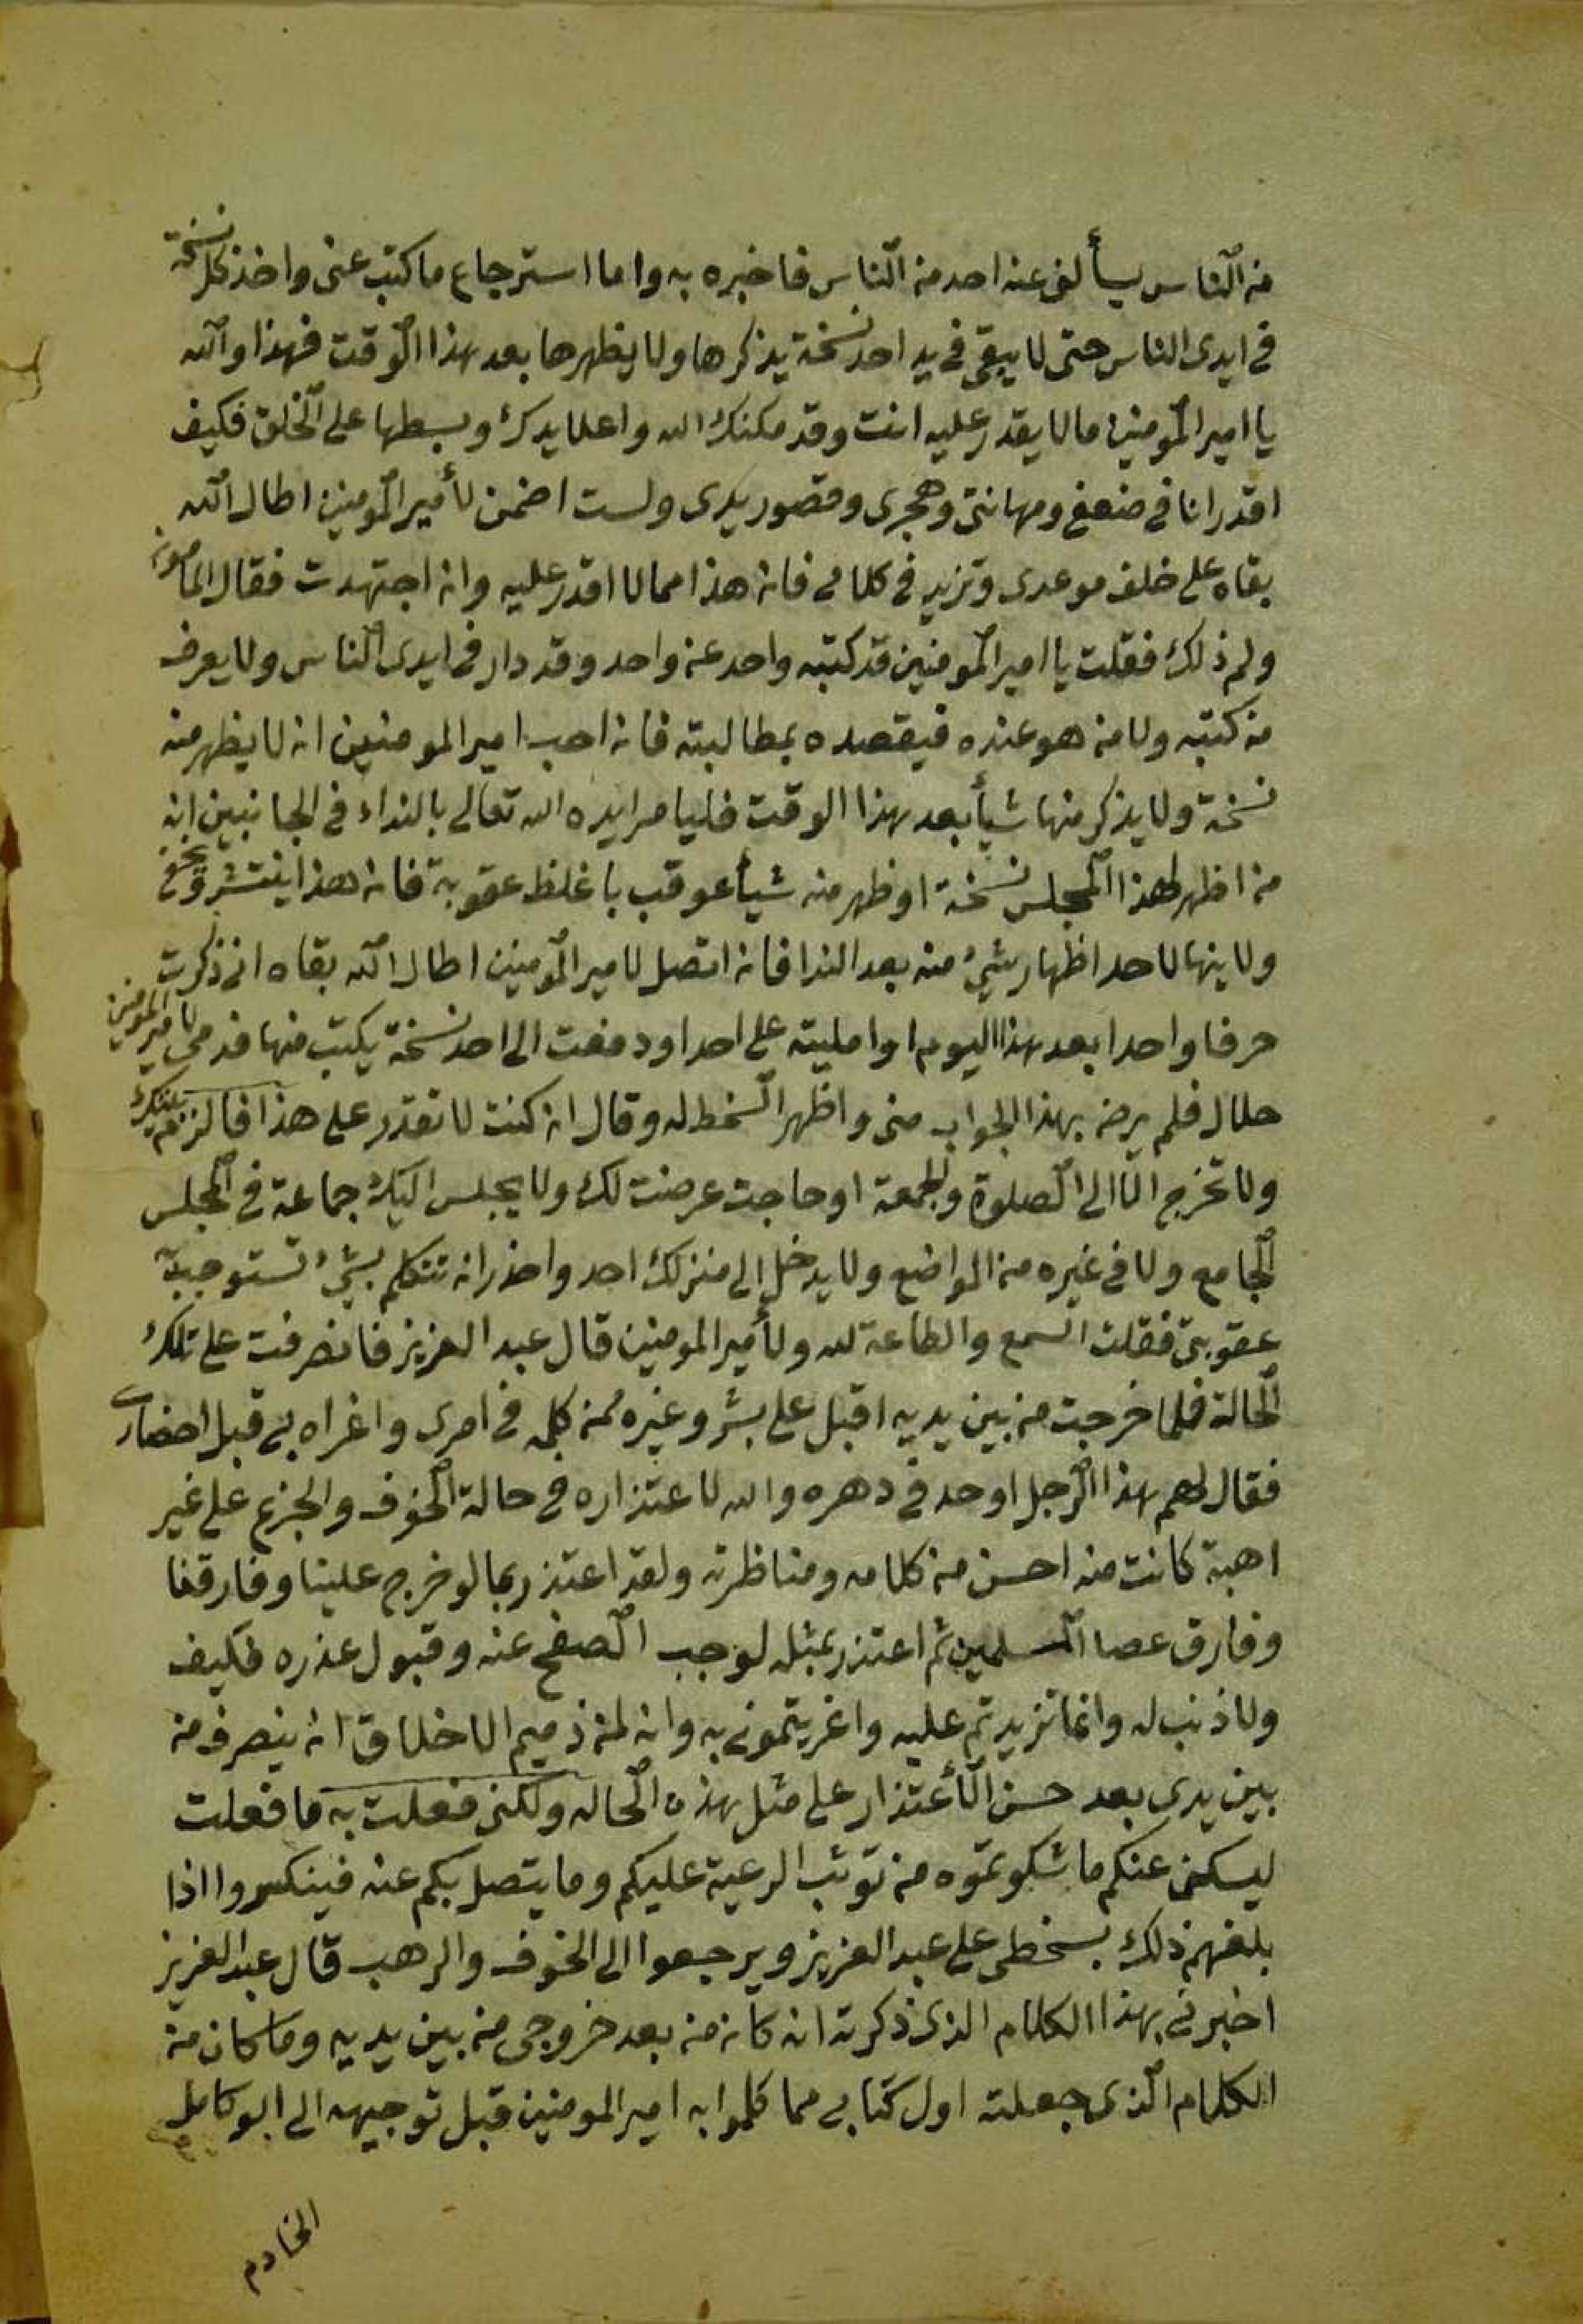 من الناس يسألنى عنه احد من الناس فاخبره به واما استرجاع ما كتب عنى واخذ كل نسخة
فى ايدى الناس حتى لا يبقى فى يد احد نسخة يذكرها ولا يظهرها بعد هذا الوقت فهذا والله
يا امير المومنين مالا يقدر عليه انت وقد مكنك الله واعلا يدك وبسطها على الخلق فكيف
اقدر انا فى ضعفى ومهانتى وهجرى وقصور يدى ولست اضمن لأمير المومنين اطال الله
بقاه على خلف موعدى وتزيد فى كلامى فان هذا ممالا اقدر عليه وان اجتهدت فقال المامون
ولم ذلك فقلت يا امير المومنين قد كتبه واحد عن واحد وقد دار فى ايدى الناس ولا يعرف
من كتبه ولا من هو عنده فيقصده بمطالبته فان احب امير المومنين ان لا يظهر منه
نسخة ولا يذكر منها شيأ بعد هذا الوقت فليامر ايده الله تعالى بالنداء فى الجانبين انه
من اظهر لهذا المجلس نسخة او ظهر منه شيأ عوقب باغلظ عقوبة فان هذا ينتشر
ولا يتها لاحد اظهار شىء منه بعد الندا فان اتصل لامير المومنين اطال الله بقاه انى ذكرت
حرفا واحدا بعد هذا اليوم او امليته على احد او دفعت الى احد نسخة يكتب منها فدمى لامير المومنين
حلال فلم يرض بهذا الجواب منى واظهر السخط له وقال ان كنت لا تقدر على هذا فالزم بيتك
ولا تخرج الا الى الصلوة والجمعة او حاجت عرضت لك ولا يجلس اليك جماعة فى المجلس
الجامع ولا فى غيره من المواضع ولا يدخل الى منزلك احد واحذر ان تتكلم بشىء تستوجب به
عقوبتى فقلت السمع والطاعة لله ولأمير المومنين قال عبد العزيز فانصرفت على تلك
الحالة فلما خرجت من بين يديه اقبل على بشر وغيره ممن كلمه فى امرى واغراه بى قبل احضارى
فقال لهم هذا الرجل اوحد فى دهره والله لاعتذاره فى حالة الخوف والجزع على غير
اهبة كانت منه احسن من كلامه ومناظرته ولقد اعتذر بما لو خرج علينا وفارقنا
وفارق عصا المسلمين ثم اعتذر بمثله لوجب الصفح عنه وقبول عذره فكيف
ولا ذنب له وانما تزيدتم عليه واغريتمونى به وانه لمن ذميم الاخلاق ان ينصرف من
بين يدى بعد حسن الأعتذار على مثل هذه الحاله ولكنى فعلت به ما فعلت
ليسكن عنكم ما شكوتموه من توثب الرعية عليكم وما يتصل بكم عنه فينكسروا اذا
بلغهم ذلك بسخطى على عبد العزيز ويرجعوا الى الخوف والرهب قال عبد العزيز
اخبرنى بهذا الكلام الذى ذكرته انه كان من بعد خروجى من بين يديه وما كان من
الكلام الذى جعلته اول كتابى مما كلموا به امير المومنين قبل توجيهه الى ابو كامل
الخادم